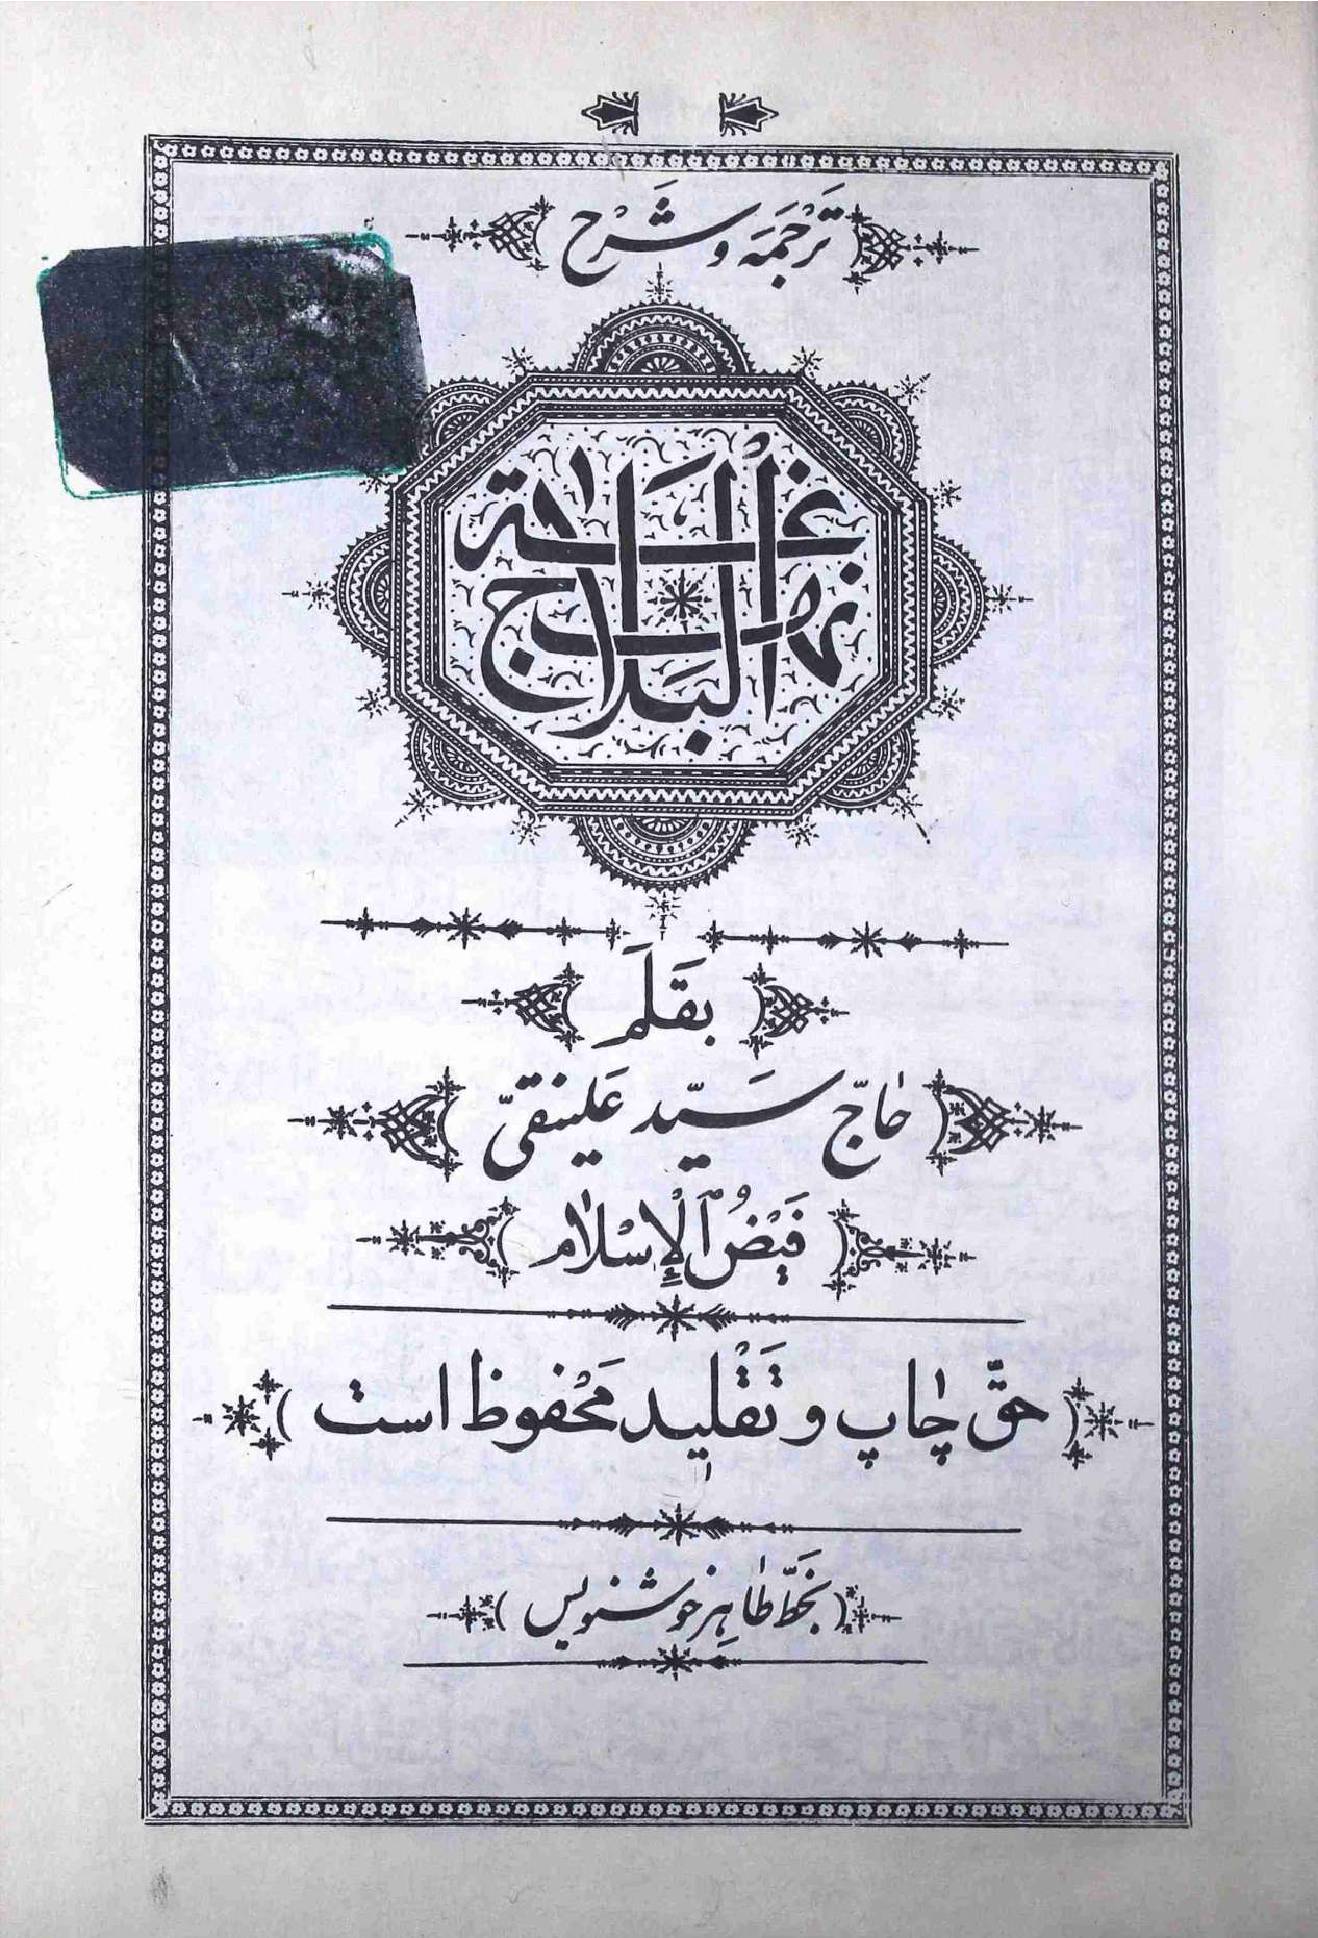 تَرْجَمَه و شَرْح
نهج البلاغة
بقَلَم
حٰاجّ سَیّد عَلینقیّ
فَیْضُ ٱلْإِسْلٰام
حقّ چاپ و تَقْلید مَحْفوظ است
بخَطّ طاهِر خوشنویس